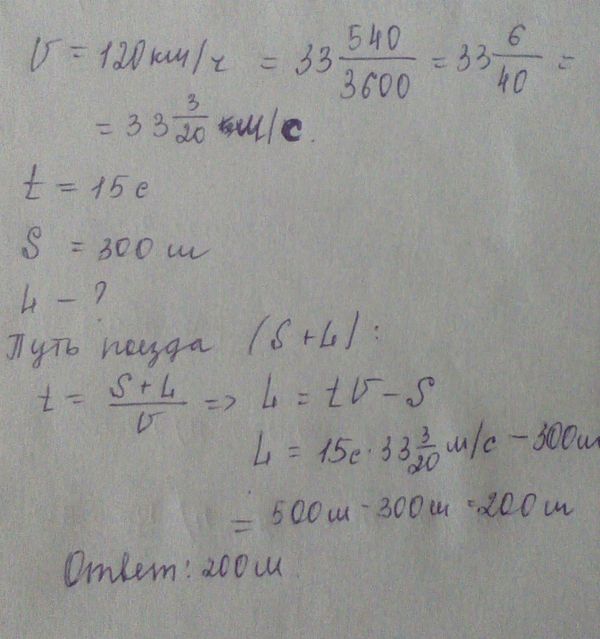 v = 120 км/ч = 33 540/3600 = 33 6/40 =
= 33 3/20 м/с.
t = 15 с
S = 300 м
L - ?
Путь поезда (S + L):
t = (S + L)/v => L = tv - S
L = 15с · 33 3/20 м/с - 300м
= 500м - 300м = 200м
Ответ: 200м.